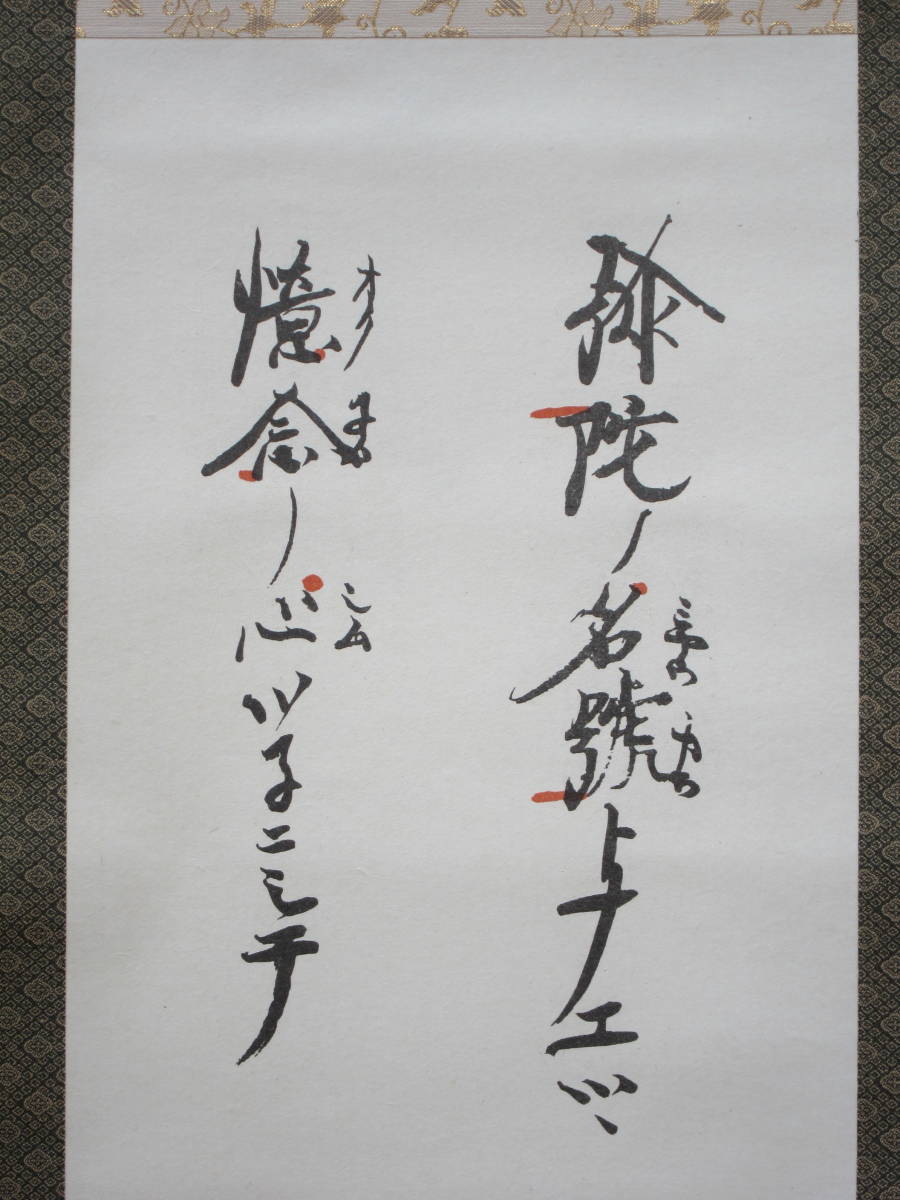 彌陀ノ名號トナエツヽ
ミヤウ カウ
憶念ノ心ツ子ニシテ
オク 子ム シム